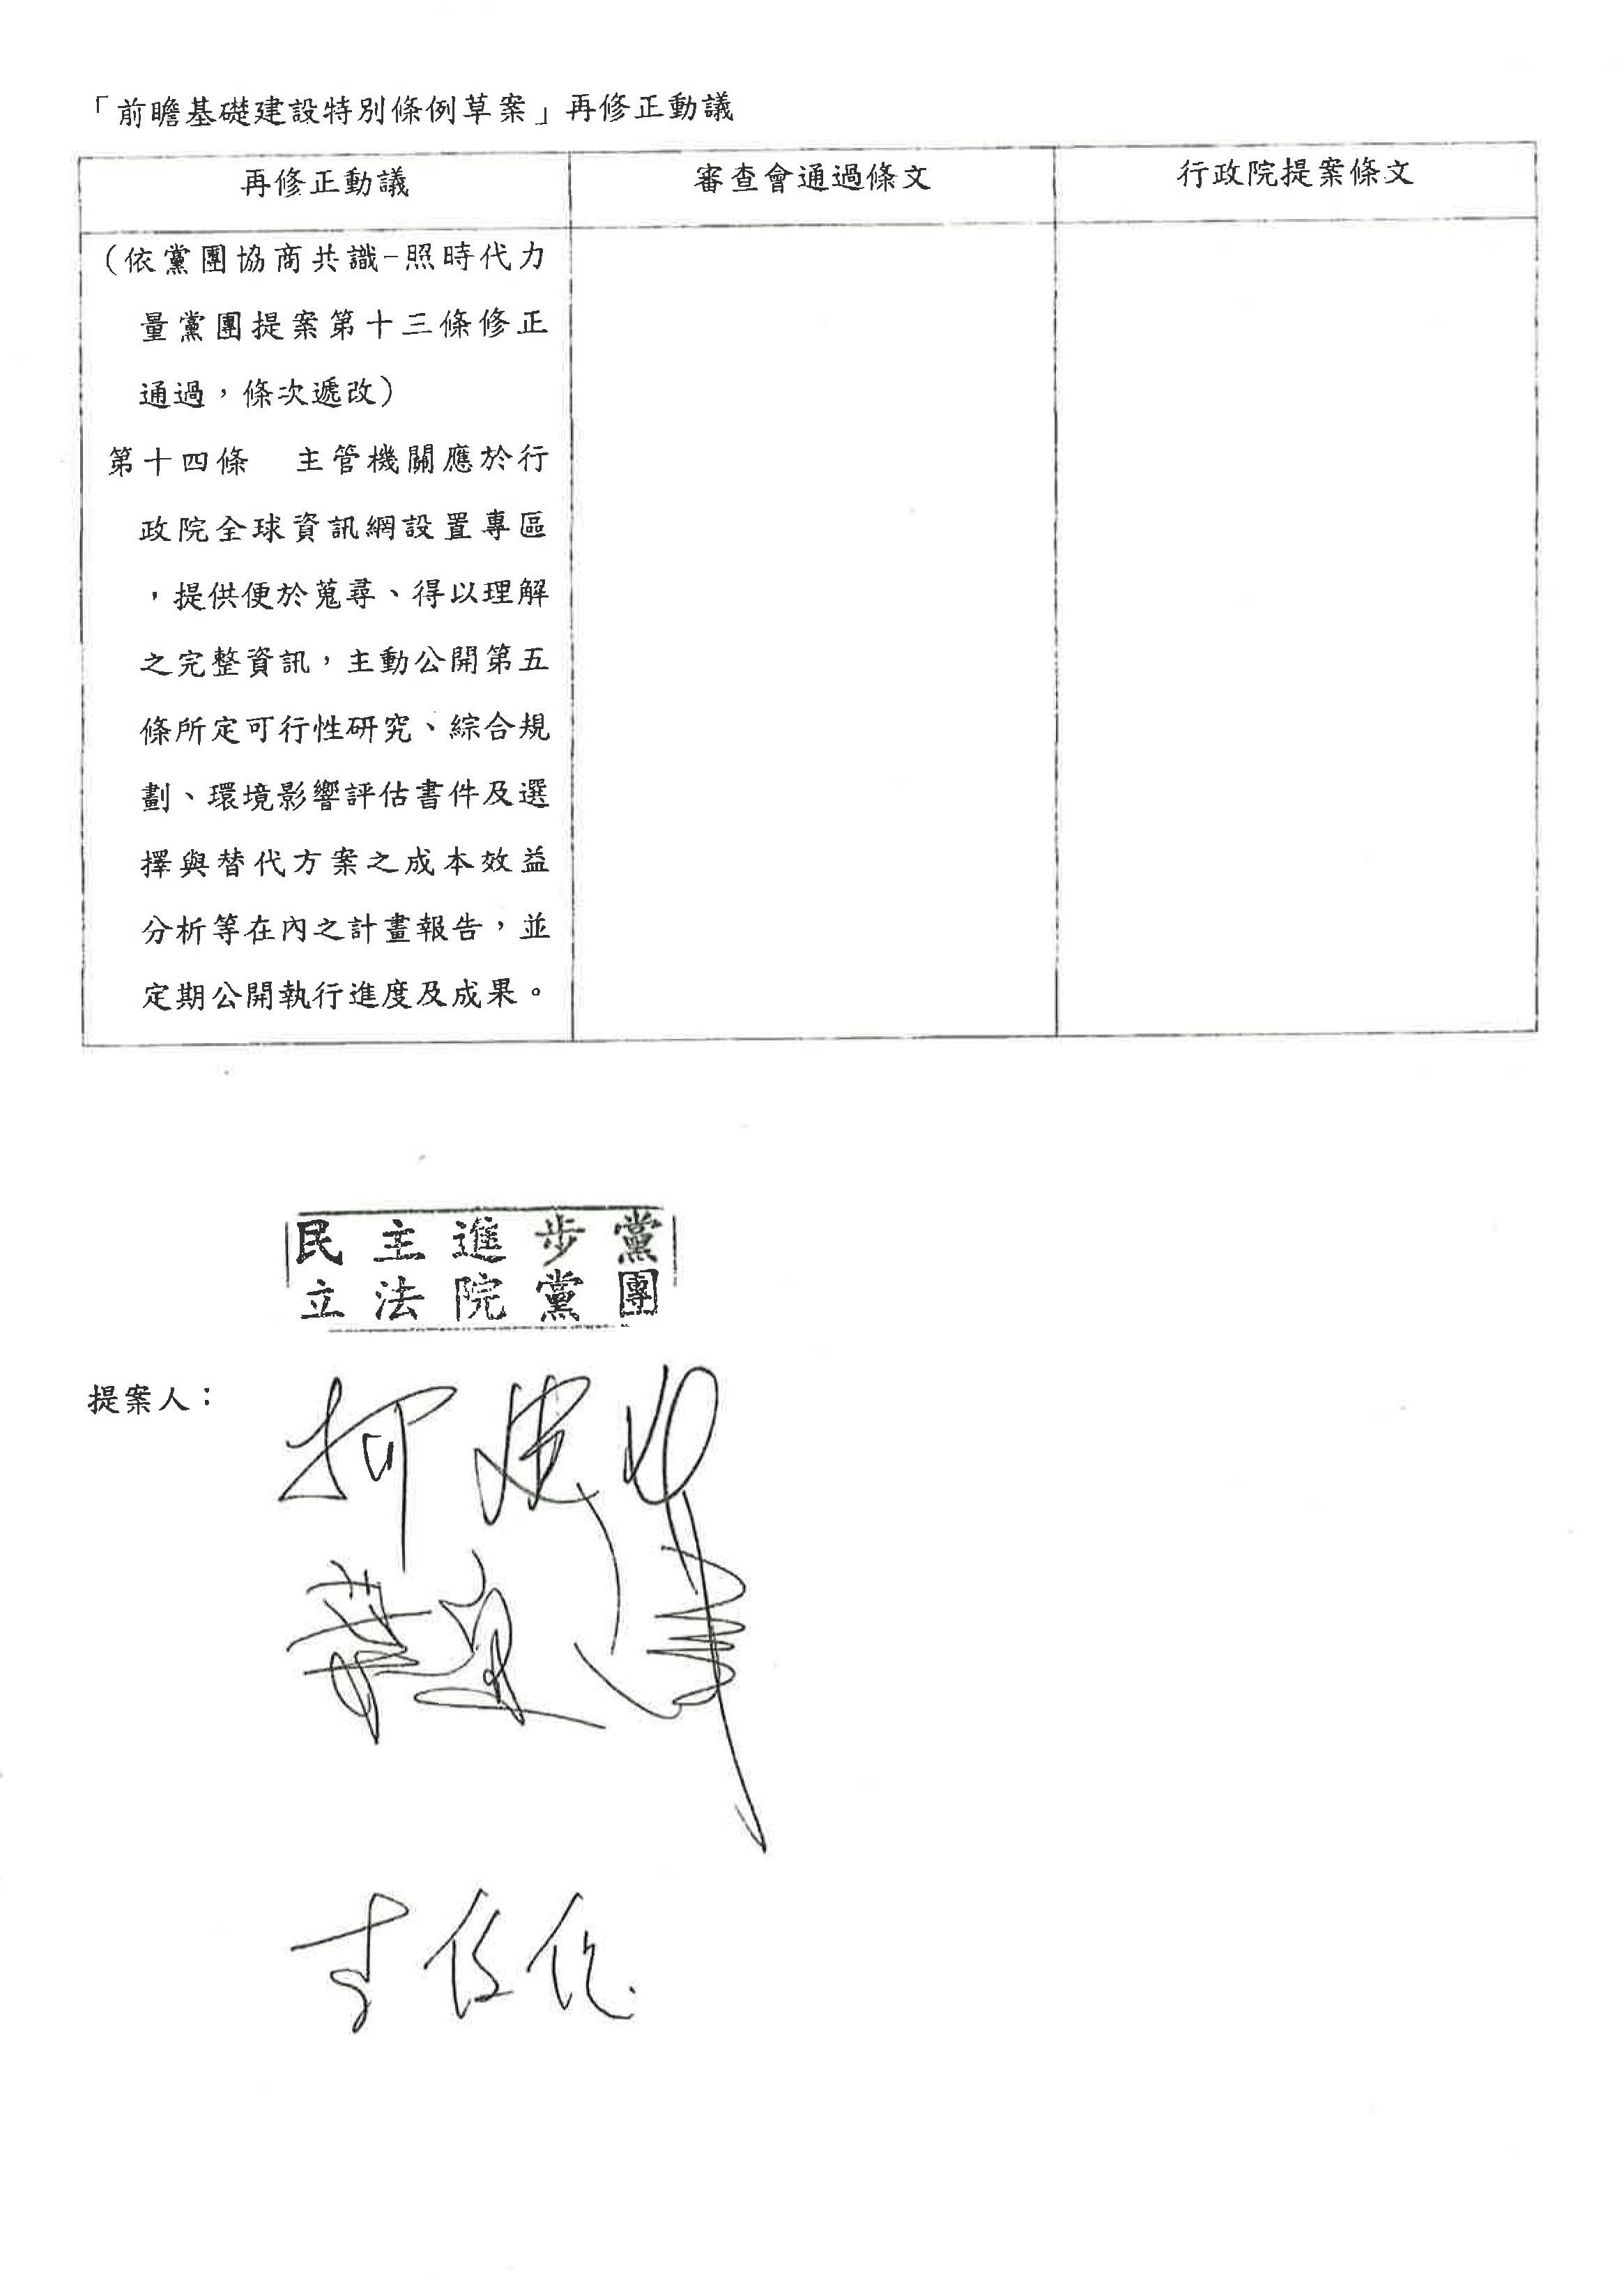 「前瞻基礎建設特別條例草案」再修正動議
再修正動議
審查會通過條文
行政院提案條文
(依黨團協商共識-照時代力
量黨團提案第十三條修正
通過，條次遞改)
第十四條　主管機關應於行
政院全球資訊網設置專區
，提供便於蒐尋、得以理解
之完整資訊，主動公開第五
條所定可行性研究、綜合規
劃、環境影響評估書件及選
擇與替代方案之成本效益
分析等在內之計畫報告，並
定期公開執行進度及成果。
民主進步黨
立法院黨團
提案人：
柯建
李俊俋